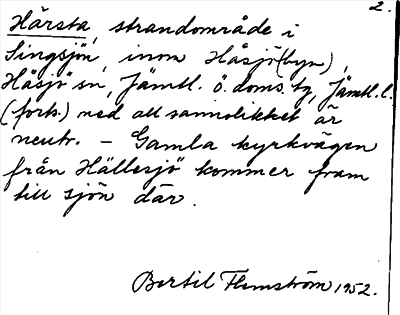 2.
Hårsta, strandområde i
Singsjön, inom Håsjö (byn),
Håsjö sn, Jämtl. ö. doms. tg, Jämtl. l.
(forts.) med all sannolikhet är
neutr. – Gamla kyrkvägen
från Hällesjö kommer fram
till sjön där.
Bertil Flemström 1952.